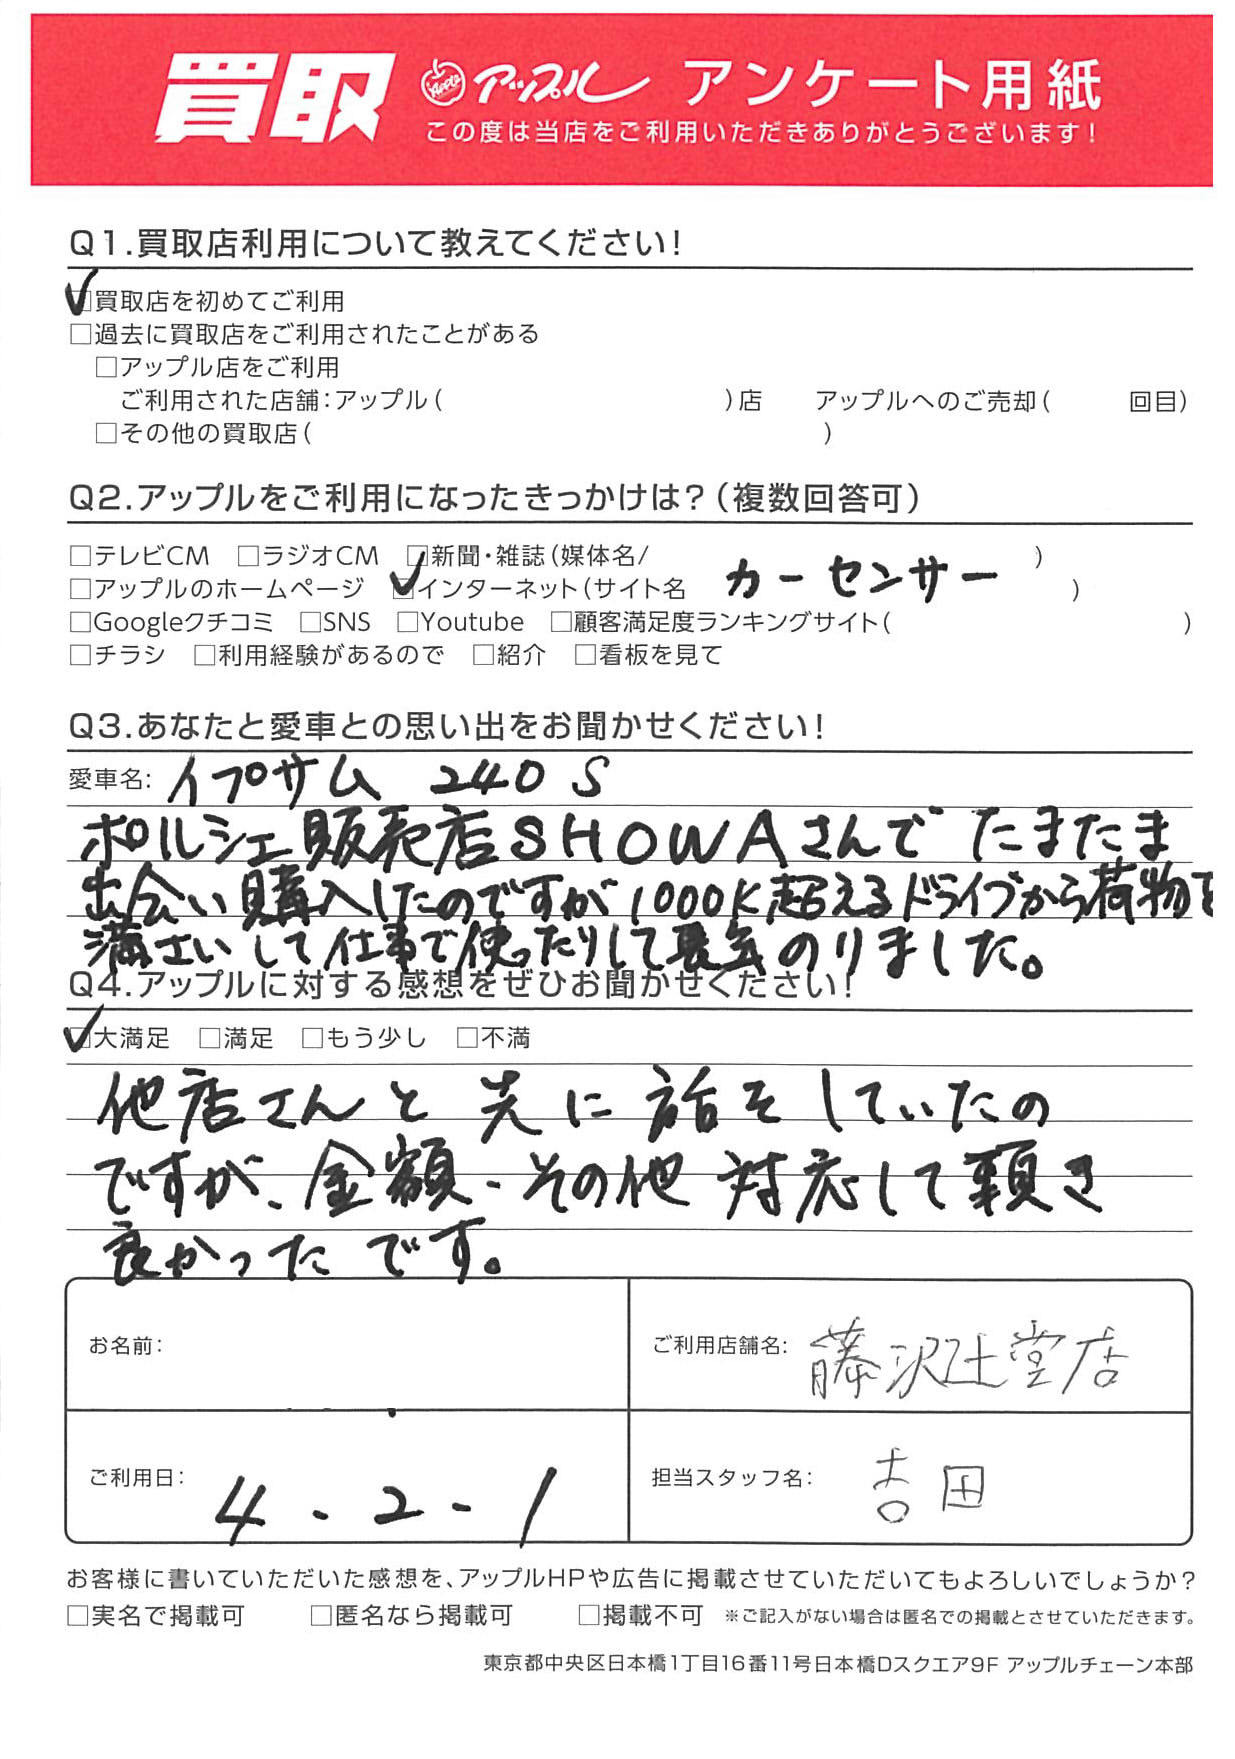 買取 Apple アップル アンケート用紙
この度は当店をご利用いただきありがとうございます!
Q1.買取店利用について教えてください!
☑買取店を初めてご利用
□過去に買取店をご利用されたことがある
□アップル店をご利用
ご利用された店舗:アップル( )店 アップルへのご売却( 回目)
□その他の買取店( )
Q2.アップルをご利用になったきっかけは?(複数回答可)
□テレビCM □ラジオCM □新聞・雑誌(媒体名/ )
□アップルのホームページ ☑インターネット(サイト名 カーセンサー )
□Googleクチコミ □SNS □Youtube □顧客満足度ランキングサイト( )
□チラシ □利用経験があるので □紹介 □看板を見て
Q3.あなたと愛車との思い出をお聞かせください!
愛車名: イプサム 240 S
ポルシェ販売店SHOWAさんでたまたま
出会い購入したのですが1000K超えるドライブから荷物を
満さいして仕事で使ったりして長年のりました。
Q4.アップルに対する感想をぜひお聞かせください!
☑大満足 □満足 □もう少し □不満
他店さんと先に話をしていたの
ですが、金額、その他対応して頂き
良かったです。
お名前:
ご利用店舗名: 藤沢辻堂店
ご利用日: 4-2-1
担当スタッフ名: 吉田
お客様に書いていただいた感想を、アップルHPや広告に掲載させていただいてもよろしいでしょうか?
□実名で掲載可 □匿名なら掲載可 □掲載不可 ※ご記入がない場合は匿名での掲載とさせていただきます。
東京都中央区日本橋1丁目16番11号日本橋Dスクエア9F アップルチェーン本部